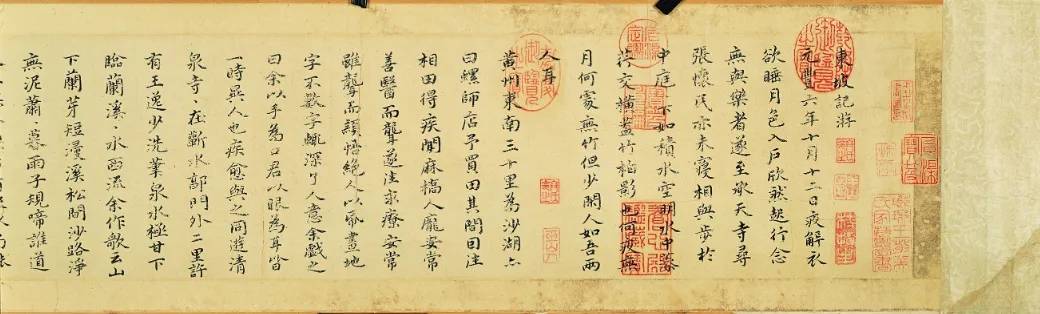 東坡記
元豐六年十月十二日夜解衣
欲睡月色入戶欣然起行念
無與樂者遂至承天寺尋
張懷民亦未寢相與步於
中庭下如積水空明水中藻
荇交橫蓋竹柏影也何夜無
月何處無竹但少閒人如吾兩
人耳
黃州東南三十里為沙湖亦
曰螺師店予買田其間因往
相田得疾聞麻橋人龐安常
善醫而聾遂往求療安常
雖聾而穎悟絕人以畫地
字不數字輒深了人意余戲之
曰余以手為口君以眼為耳皆
一時異人也疾愈與之同遊清
泉寺、在蘄水郭門外二里許
有王逸少洗筆泉水極甘下
臨蘭溪、水西流余作歌云山
下蘭芽短浸溪松間沙路淨
無泥蕭、暮雨子規啼誰道